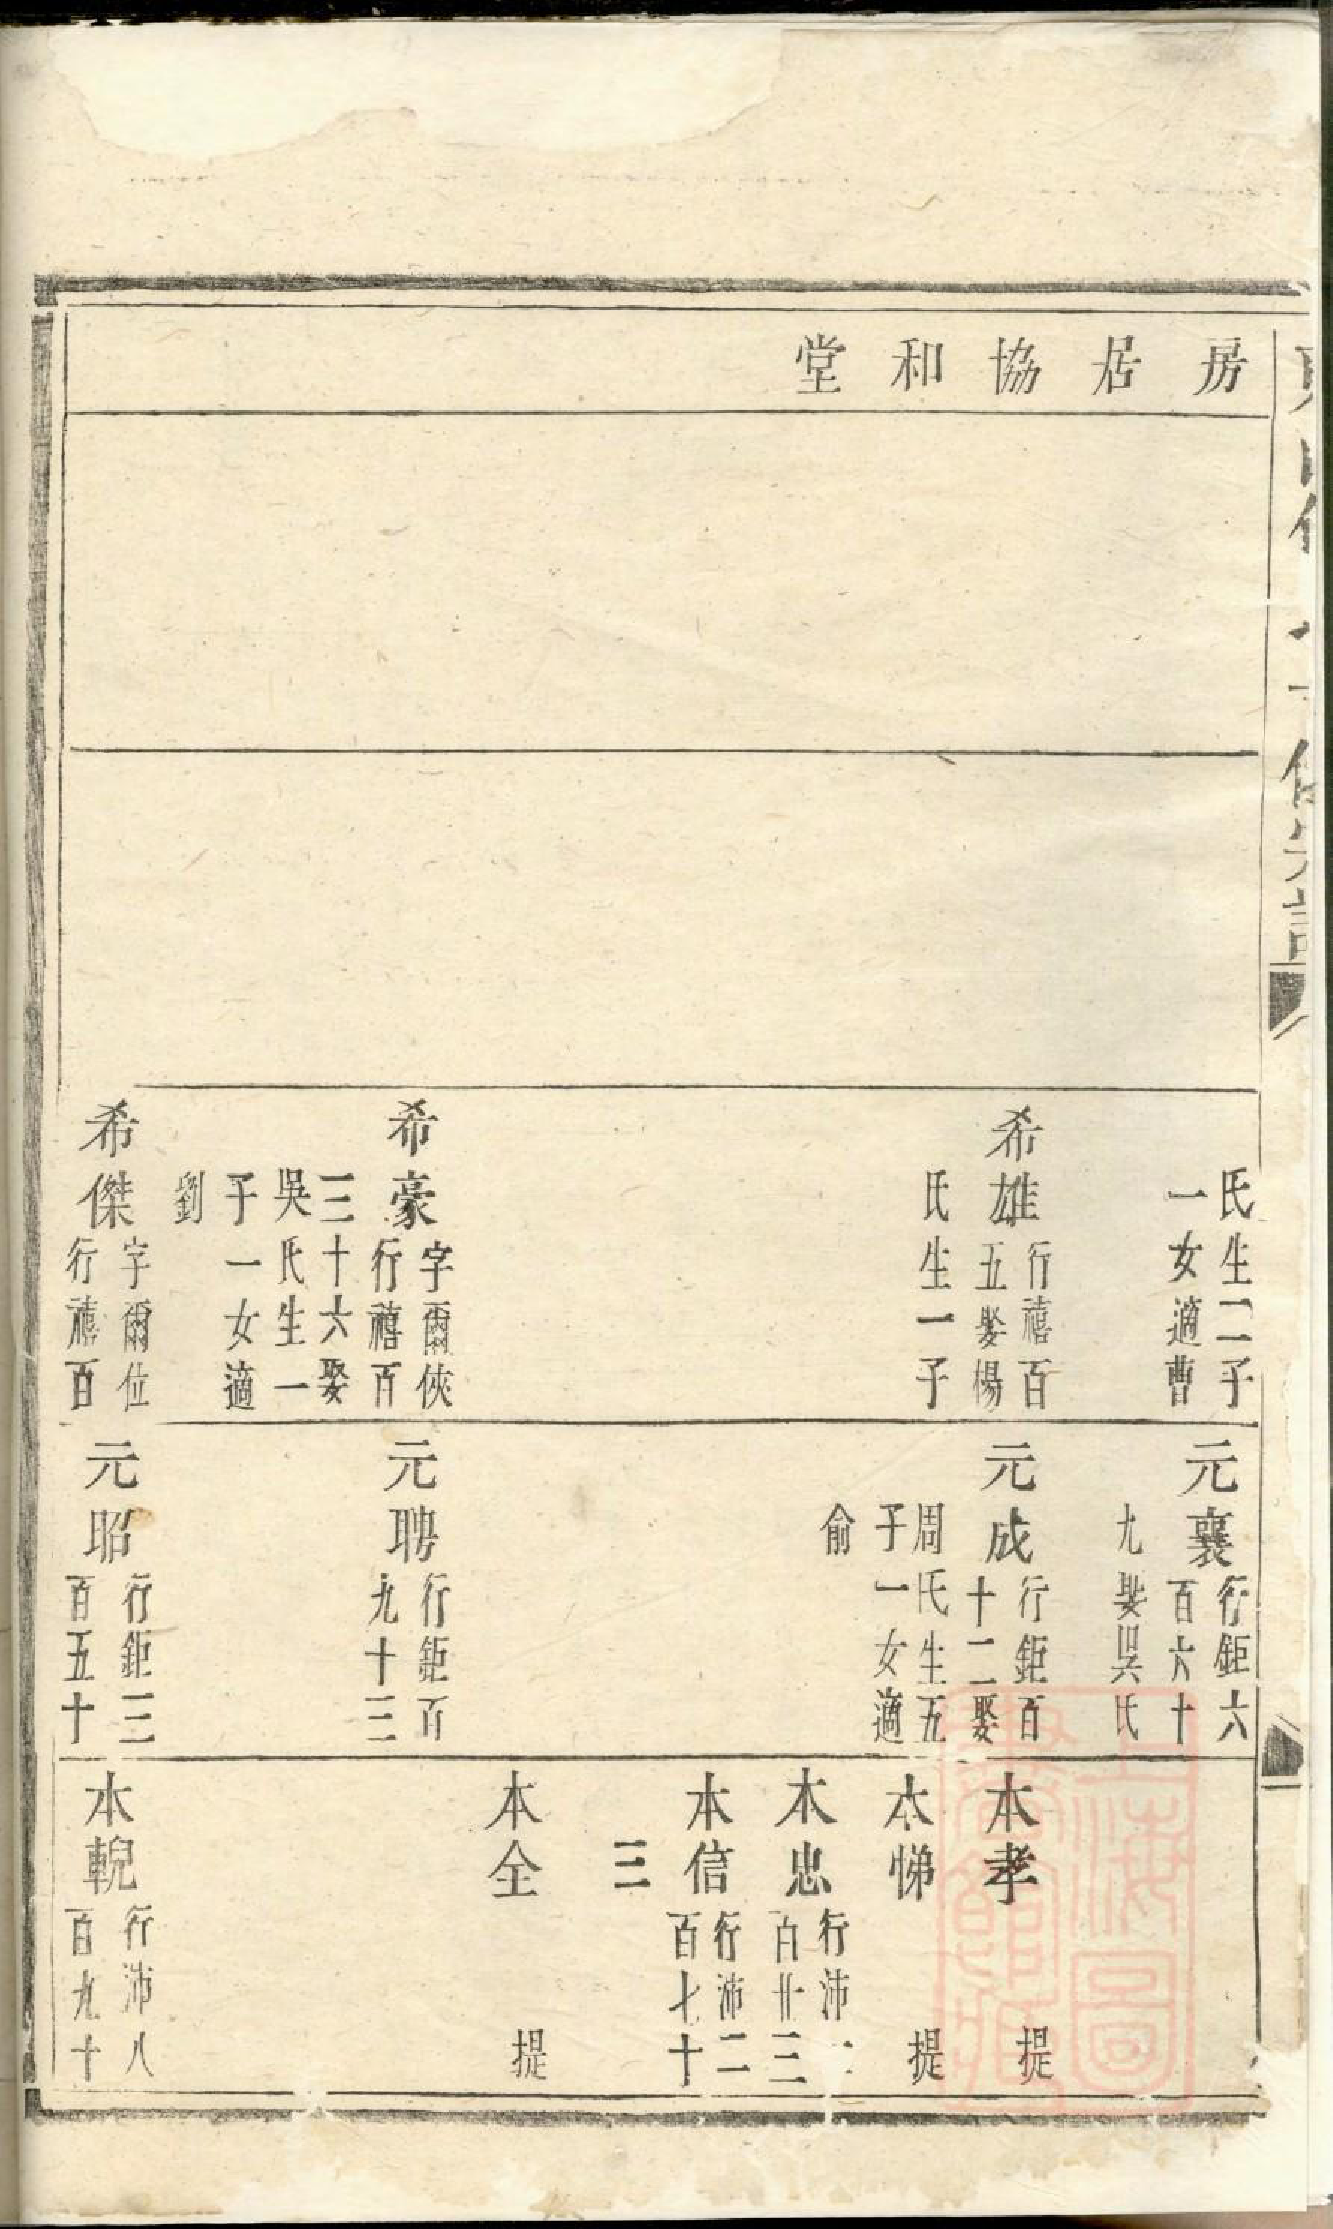 房居協和堂
氏生二子
一女適曹
希雄
行禧百
五娶楊
氏生一子
希豪
字爾俠
行禧百
三十六娶
吳氏生一
子一女適
劉
希傑
字爾位
行禧百
元襄
行鉅六
百六十
九娶吳氏
元成
行鉅百
十二娶
周氏生五
子一女適
俞
元聘
行鉅百
九十三
元昭
行鉅三
百五十
本孝
提
本悌
提
本忠
行沛
百廿三
本信
行沛二
百七十
三
本全
提
本輗
行沛八
百九十
上海圖
書館藏